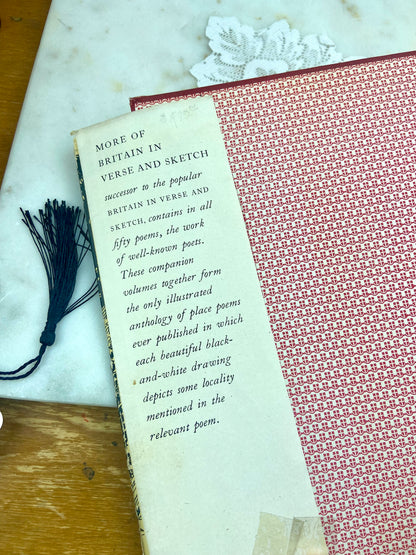 MORE OF
BRITAIN IN
VERSE AND SKETCH
successor to the popular
BRITAIN IN VERSE AND
SKETCH, contains in all
fifty poems, the work
of well-known poets.
These companion
volumes together form
the only illustrated
anthology of place poems
ever published in which
each beautiful black-
and-white drawing
depicts some locality
mentioned in the
relevant poem.